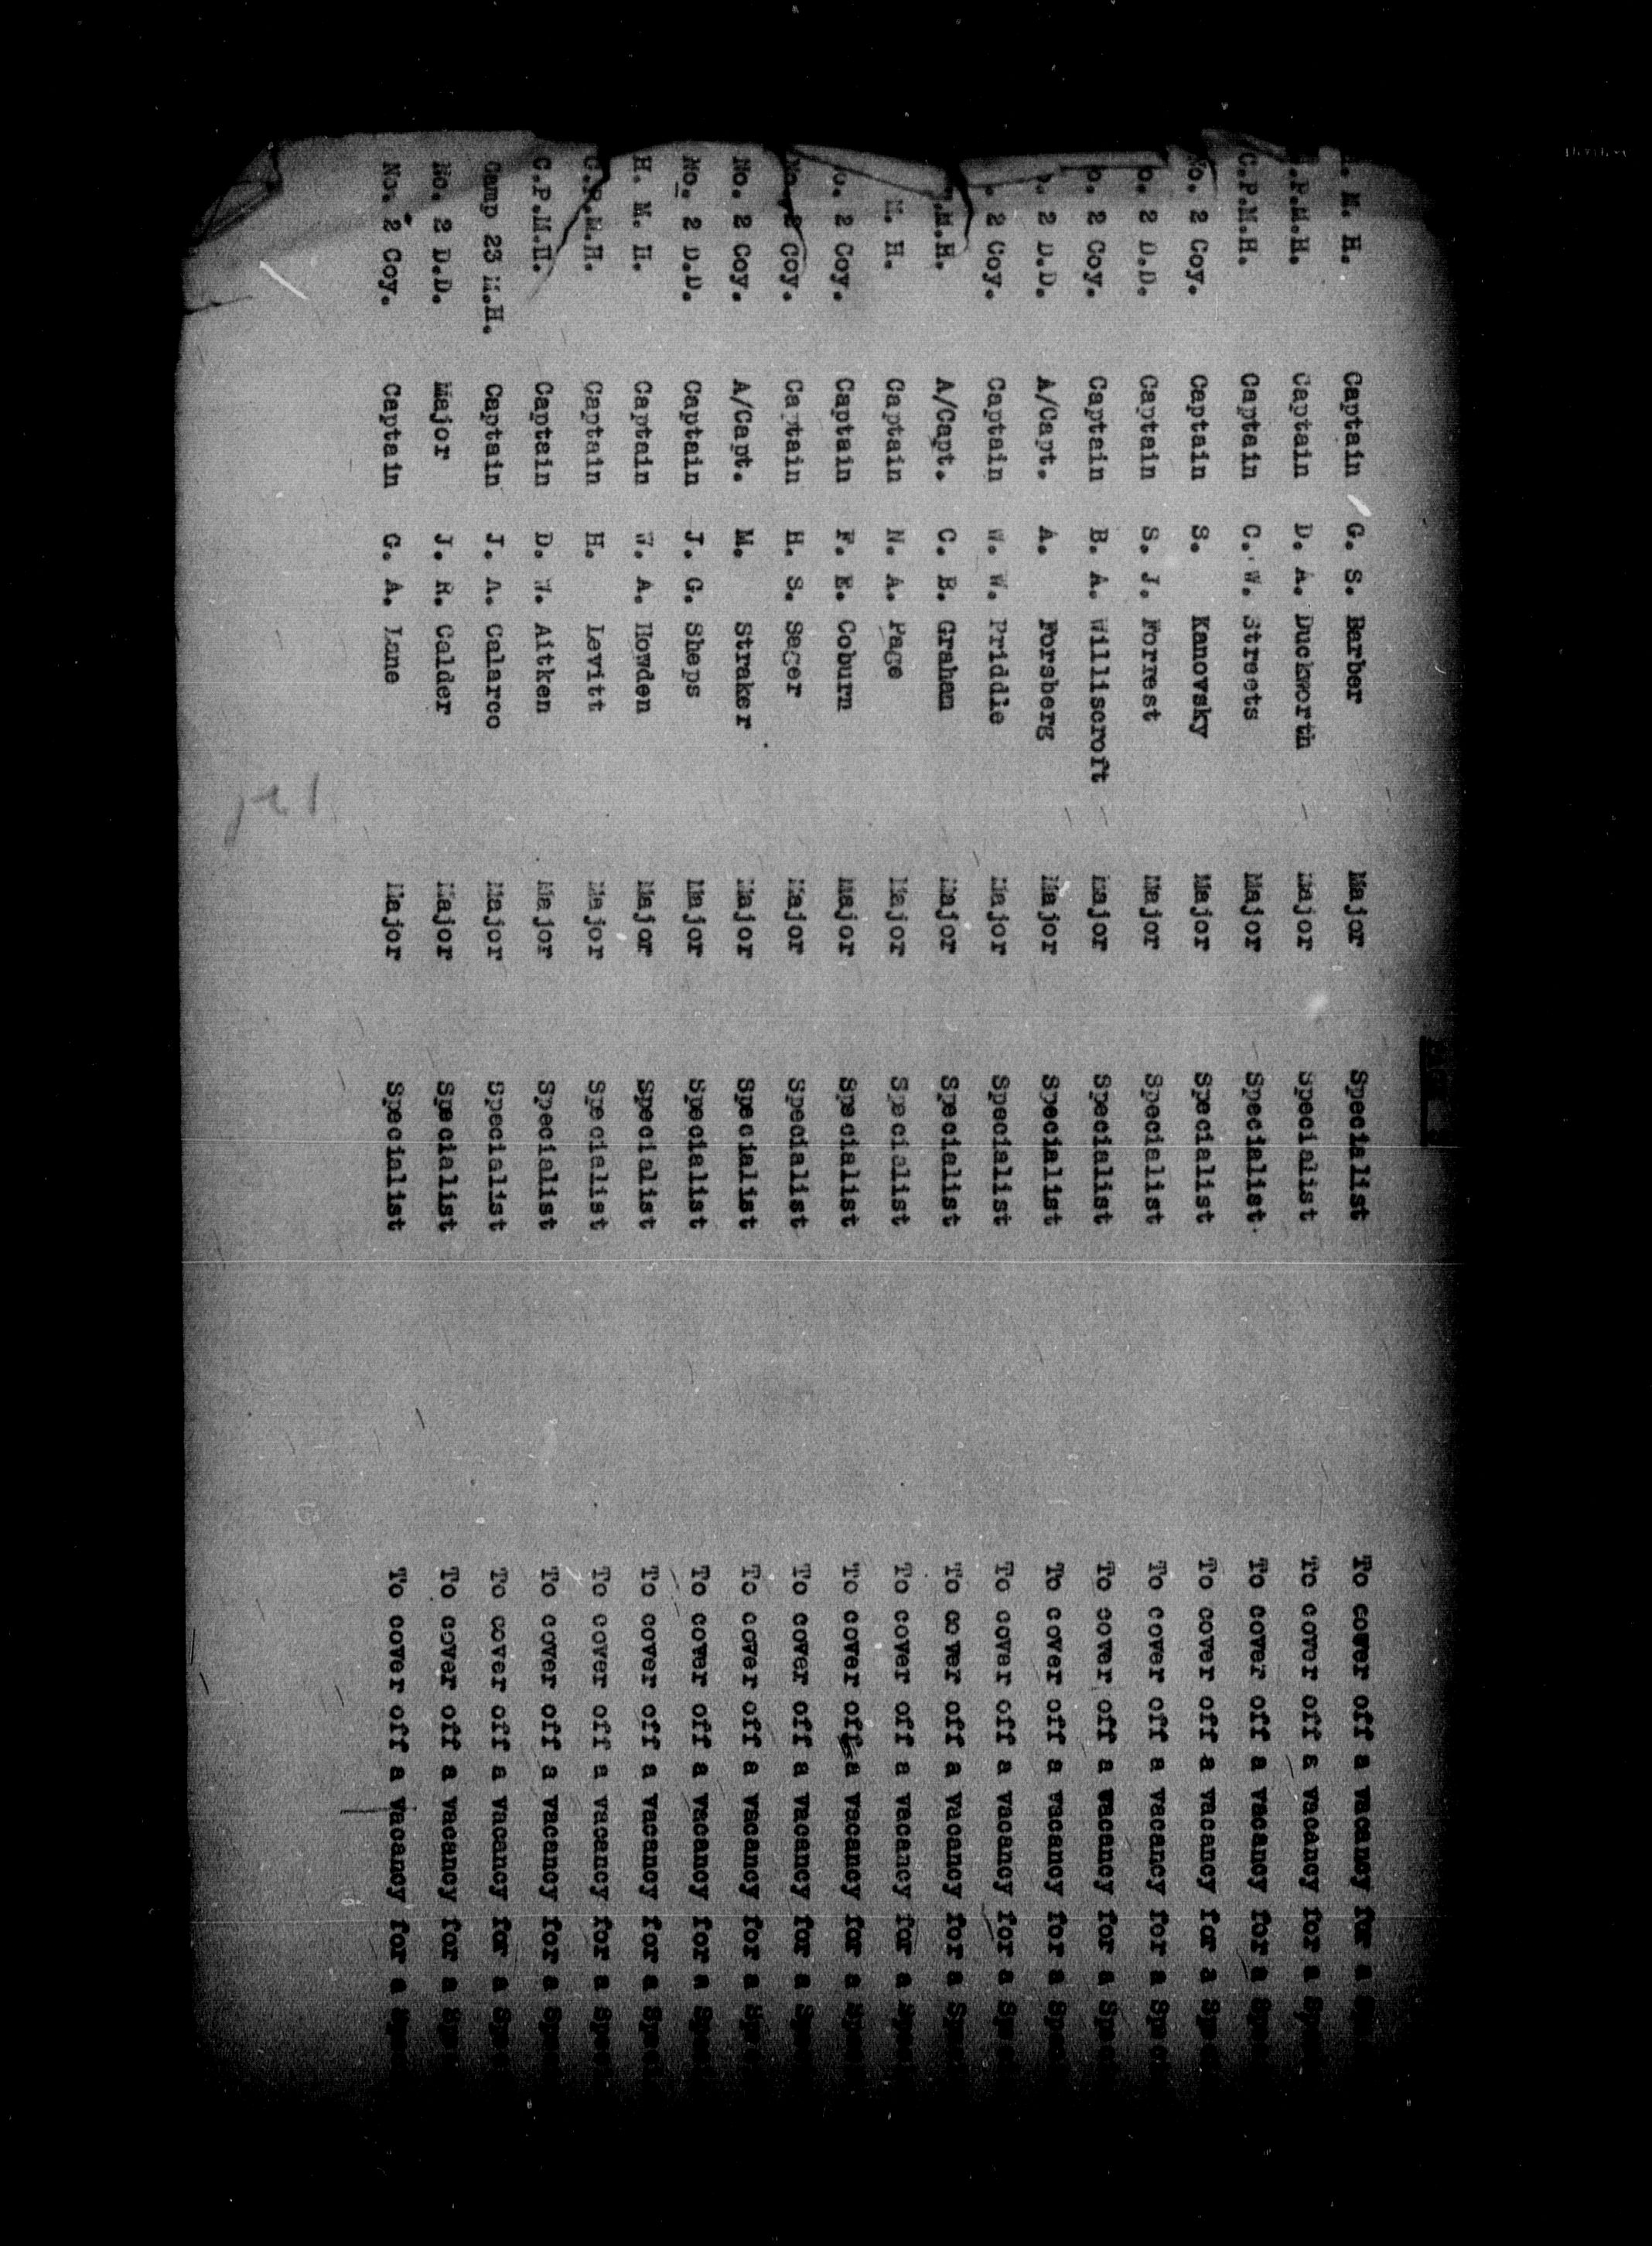 M. H. Captain G. S. Barber Major Specialist To cover off a vacancy for a
P.M.H. Captain D. A. Duckworth Major Specialist To cover off a vacancy for a
C.P.M.H. Captain C. W. Streets Major Specialist To cover off a vacancy for a
No. 2 Coy. Captain S. Kanovsky Major Specialist To cover off a vacancy for a
o. 2 D.D. Captain S. J. Forrest Major Specialist To cover off a vacancy for a
o. 2 Coy. Captain B. A. Williscroft Major Specialist To cover off a vacancy for a
. 2 D.D. A/Capt. A. Forsberg Major Specialist To cover off a vacancy for a
. 2 Coy. Captain W. W. Priddle Major Specialist To cover off a vacancy for a
.M.H. A/Capt. C. B. Graham Major Specialist To cover off a vacancy for a
M. H. Captain N. A. Page Major Specialist To cover off a vacancy for a
o. 2 Coy. Captain F. E. Coburn Major Specialist To cover off a vacancy for a
No. 2 Coy. Captain H. S. Sager Major Specialist To cover off a vacancy for a
No. 2 Coy. A/Capt. M. Straker Major Specialist To cover off a vacancy for a
No. 2 D.D. Captain J. G. Sheps Major Specialist To cover off a vacancy for a
H. M. H. Captain W. A. Howden Major Specialist To cover off a vacancy for a
C.P.M.H. Captain H. Levitt Major Specialist To cover off a vacancy for a
C.P.M.H. Captain D. W. Aitken Major Specialist To cover off a vacancy for a
Camp 23 M.H. Captain J. A. Calarco Major Specialist To cover off a vacancy for a
No. 2 D.D. Major J. R. Calder Major Specialist To cover off a vacancy for a
No. 2 Coy. Captain G. A. Lane Major Specialist To cover off a vacancy for a